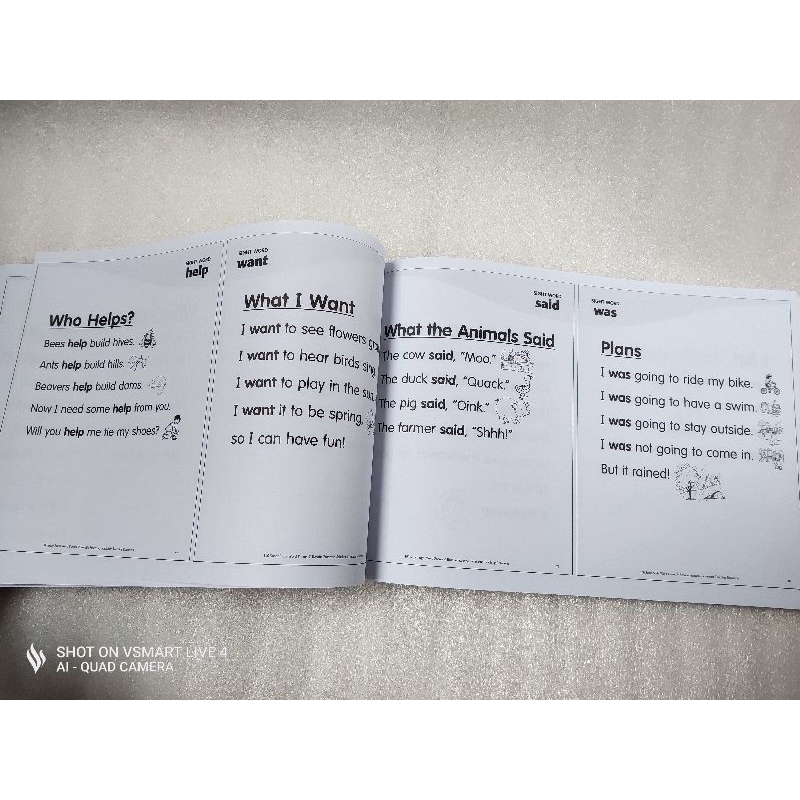 SIGHT WORD
help
Who Helps?
Bees help build hives.
Ants help build hills.
Beavers help build dams.
Now I need some help from you.
Will you help me tie my shoes?
SIGHT WORD
want
What I Want
I want to see flowers
I want to hear birds sing
I want to play in the sun
I want it to be spring,
so I can have fun!
SIGHT WORD
said
What the Animals Said
The cow said, "Moo."
The duck said, "Quack."
The pig said, "Oink."
The farmer said, "Shhh!"
SIGHT WORD
was
Plans
I was going to ride my bike.
I was going to have a swim.
I was going to stay outside.
I was not going to come in.
But it rained!
SHOT ON VSMART LIVE 4
AI - QUAD CAMERA